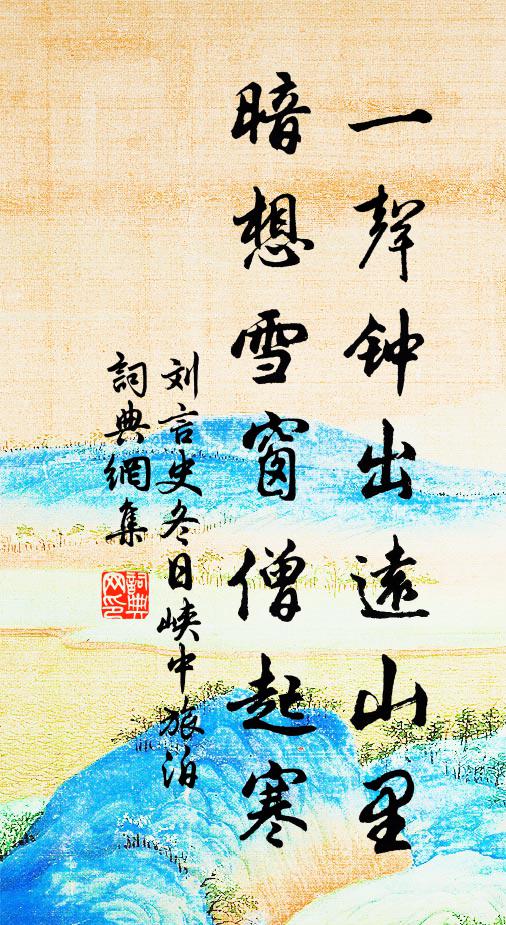 一聲钟出遠山里
暗想雪窗僧起寒
刘言史冬日峡中旅泊
詞典網集
詞典网印